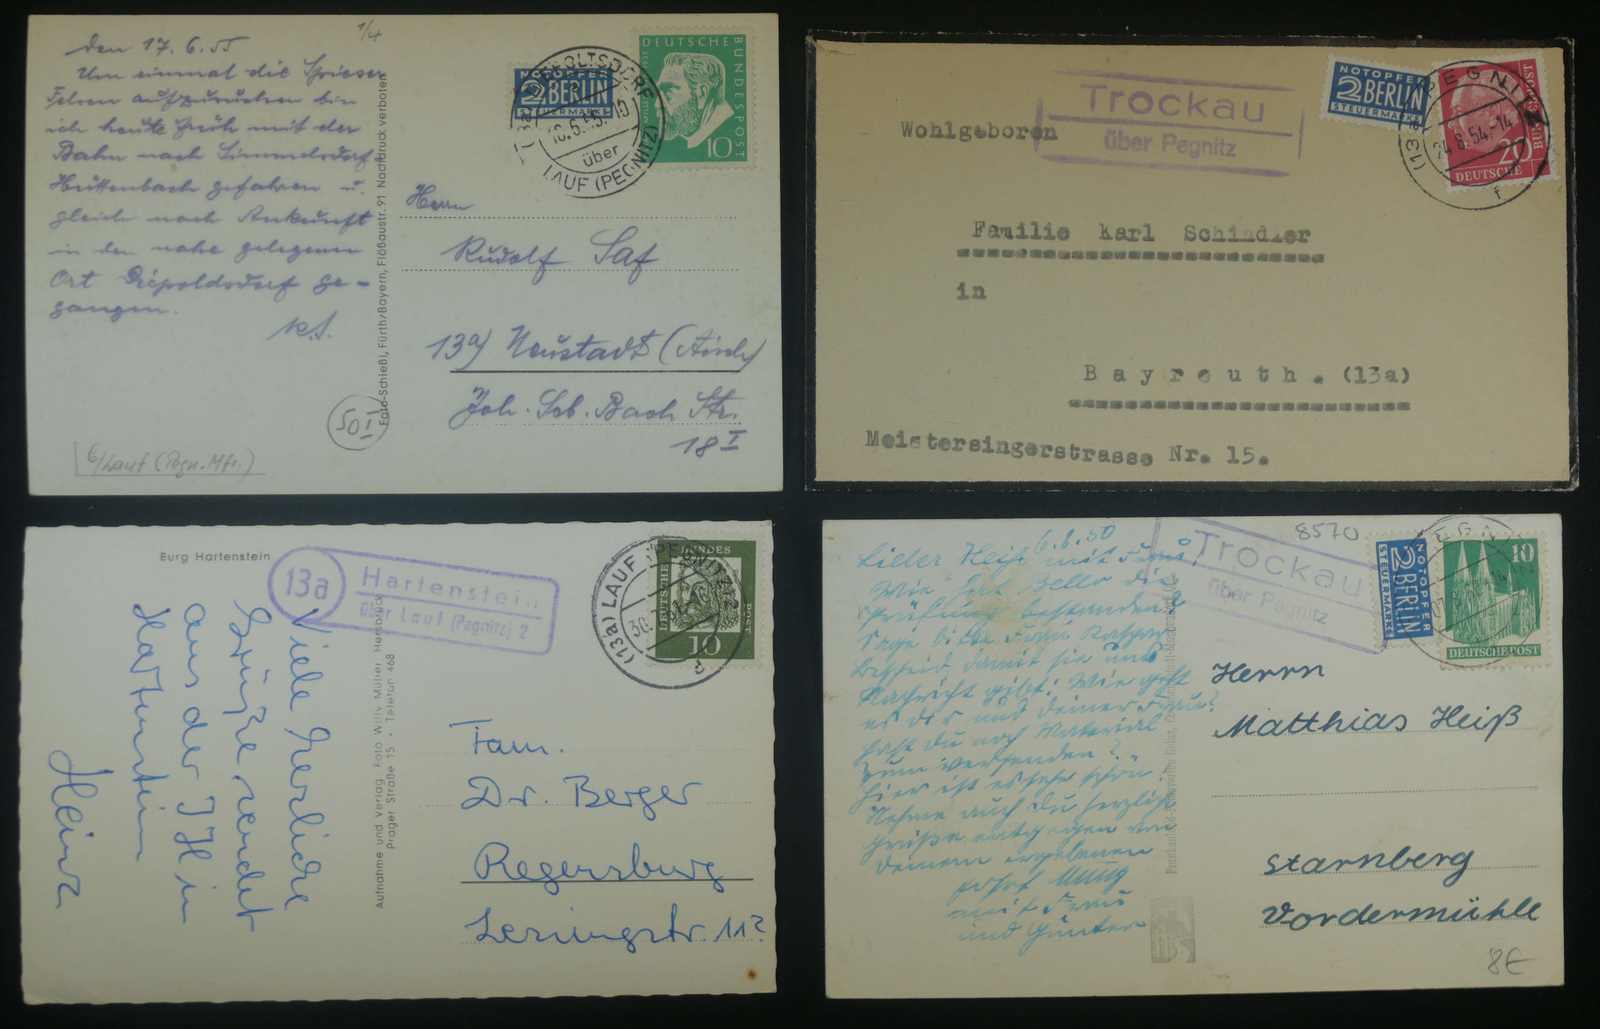 den 17.6.55
1/4
Um einmal die Spieser
Felsen aufzusuchen bin
ich heute früh mit der
Bahn nach Simmelsdorf-
Hüttenbach gefahren u.
gleich nach Ankunft
in den nahe gelegenen
Ort Diepoldsdorf ge-
gangen.
K.S.
NOTOPFER
2 BERLIN
STEUERMARKE
DEUTSCHE BUNDESPOST
10
über
LAUF (PEGNITZ)
Herrn
Rudolf Saf
13a) Neustadt (Aisch)
Joh. Seb. Bach Str.
18 I
Foto-Schießl, Fürth/Bayern, Flößaustr. 91 Nachdruck verboten
50 I
b/Lauf (Pegn. Mfr.)
Trockau
über Pegnitz
NOTOPFER
2 BERLIN
STEUERMARKE
PEGNITZ
24.6.54.-14
20
DEUTSCHE BUNDESPOST
Wohlgeboren
Familie Karl Schindler
in
Bayreuth. (13a)
Meistersingerstrasse Nr. 15.
Burg Hartenstein
13a
Hartenstein
über Lauf (Pegnitz) 2
(13a) LAUF (PEGNITZ)
DEUTSCHE BUNDESPOST
10
Viele herzliche
Grüße sendet
aus der JH in
Hartenstein
Heinz
Aufnahme und Verlag: Foto Willy Müller, Hersbruck
Prager Straße 15 · Telefon 468
Fam.
Dr. Berger
Regensburg
Lessingstr. 11
6.8.50
Lieber Heiß mit Frau,
Wie hat Sello die
Prüfung bestanden
Sage bitte Frau Kaspar
Bescheid damit sie uns
Nachricht gibt. Wie geht
es dir und deiner Frau?
Hast du noch Material
zum versenden?
Hier ist es sehr schön
Nehme auch du herzliche
Grüße entgegen von
deinem ergebenen
mit Frau
und Günter
Trockau
über Pegnitz
8570
NOTOPFER
2 BERLIN
STEUERMARKE
10
DEUTSCHE POST
Herrn
Matthias Heiß
Starnberg
Vordermühle
8€